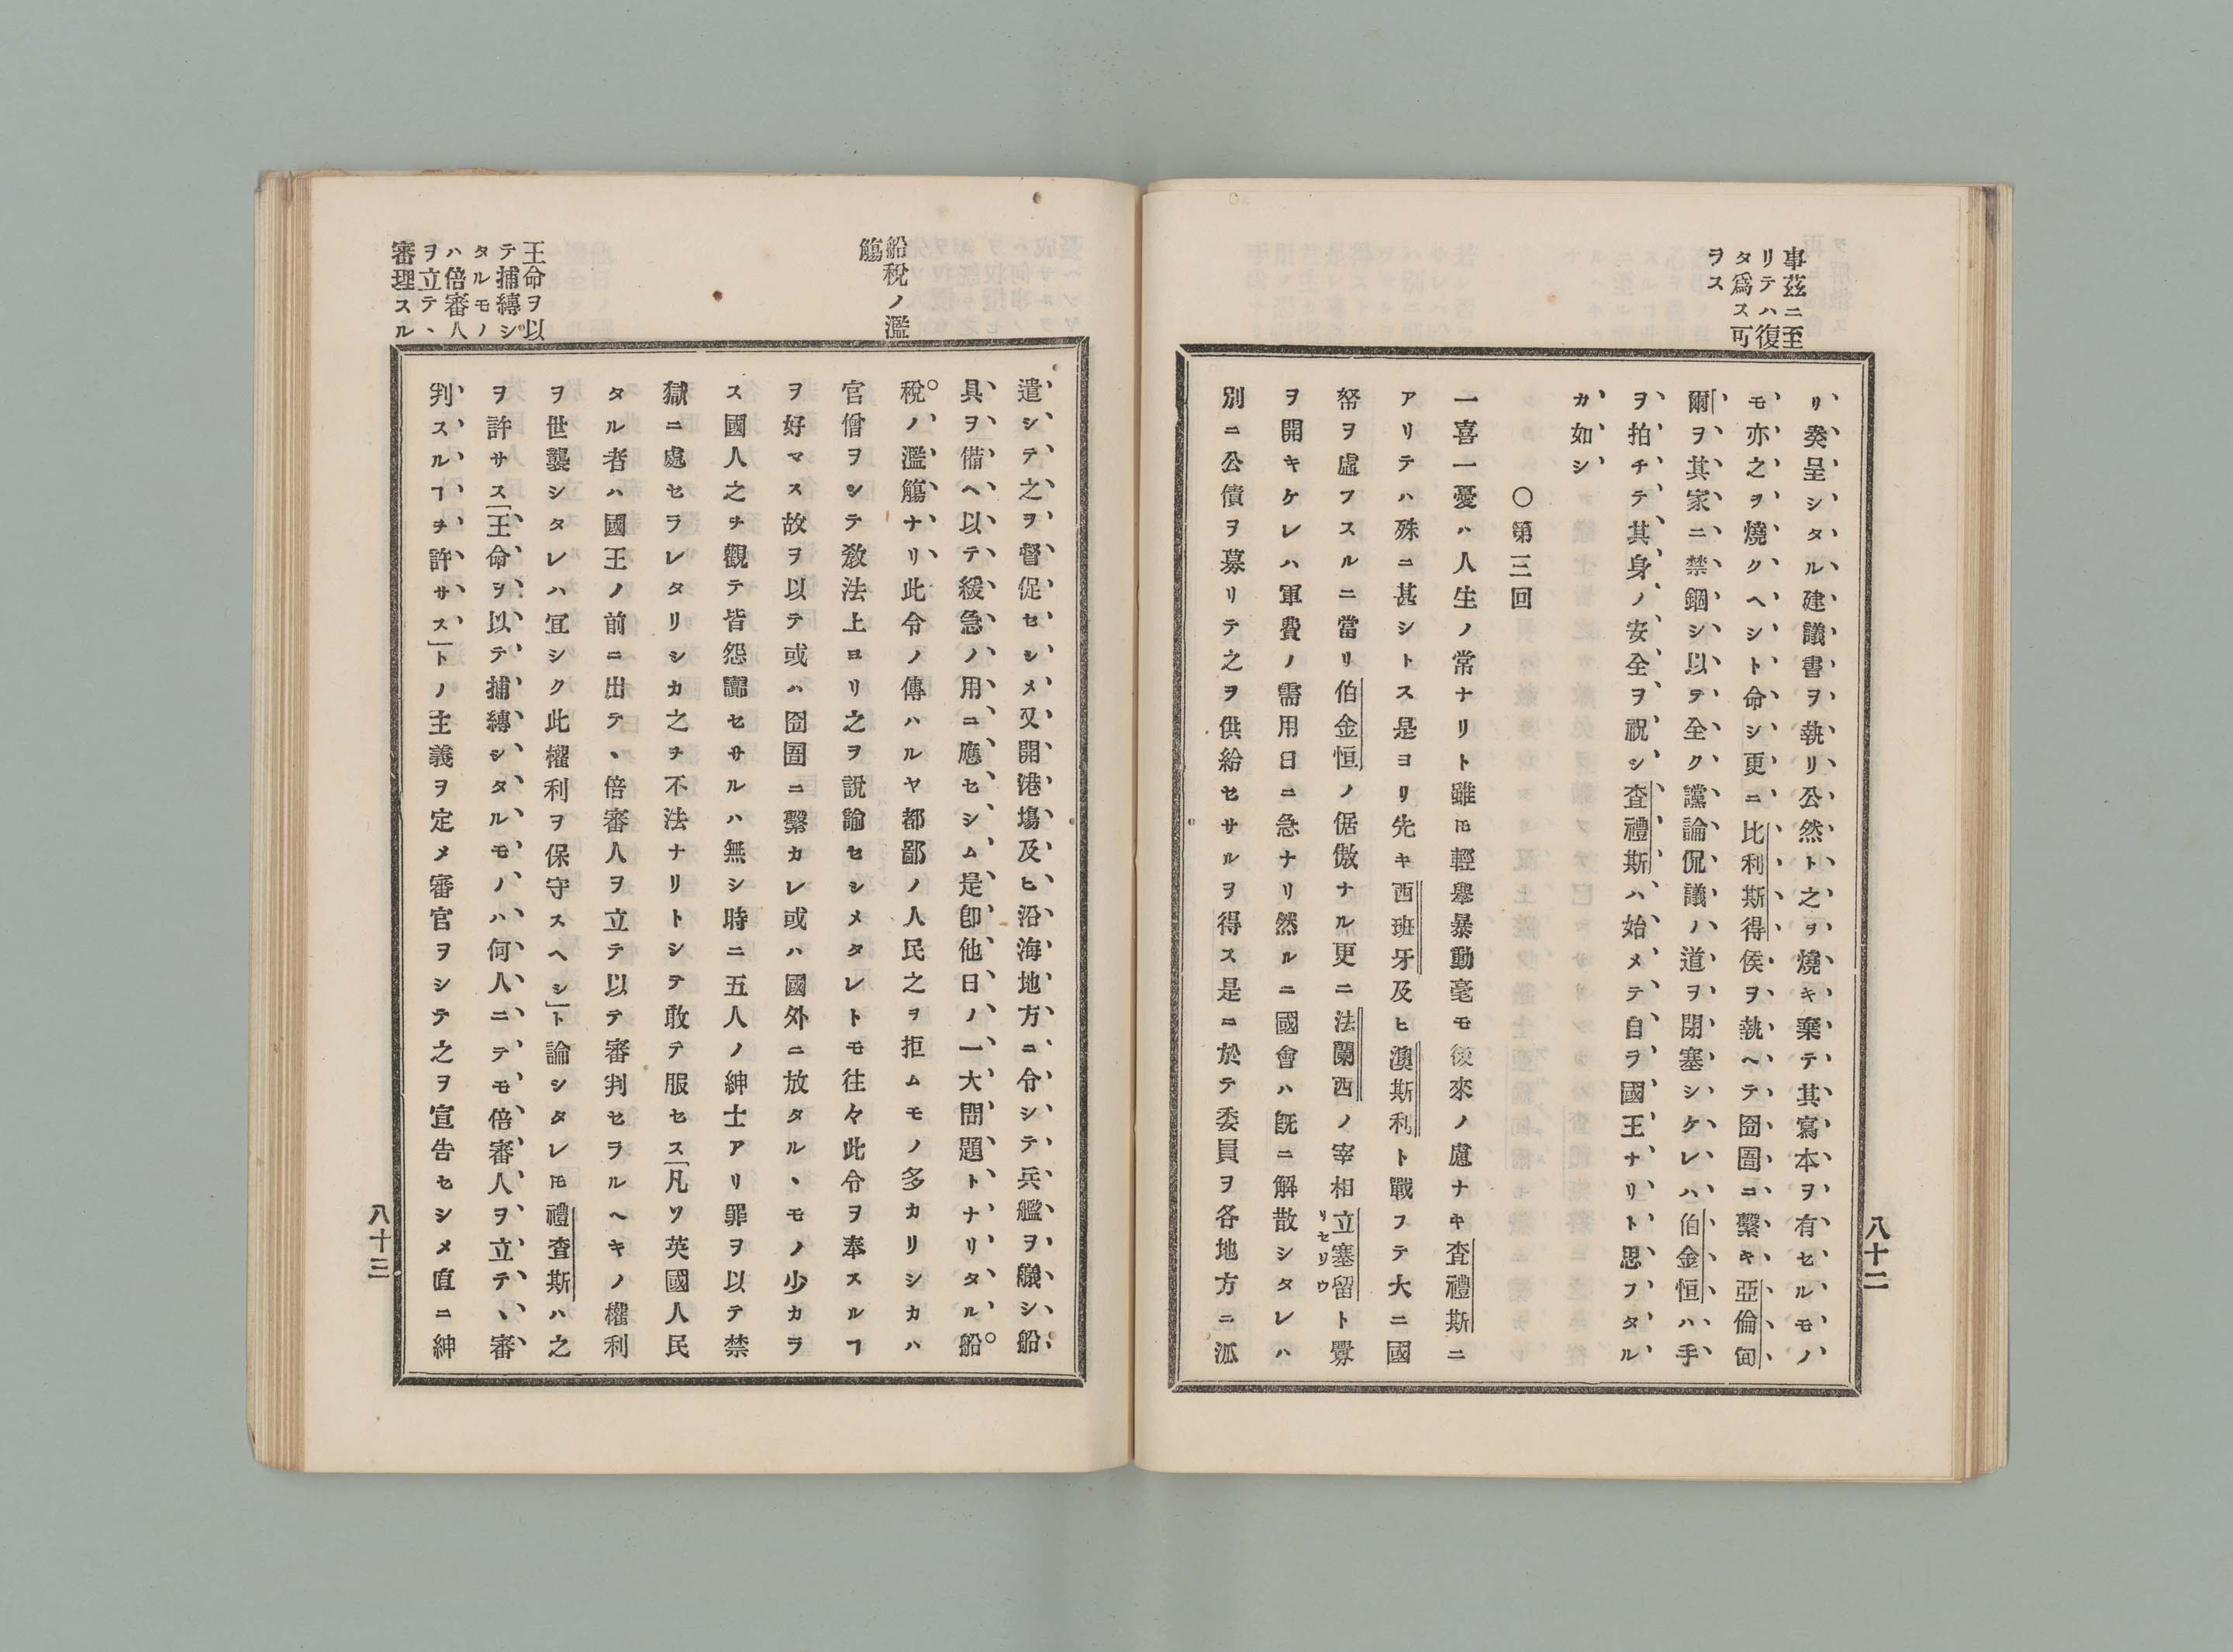 事茲ニ至
リテハ復
タ爲ス可
ヲス
リ奏呈シタル建議書ヲ執リ公然ト之ヲ燒キ棄テ其寫本ヲ有セルモノ
モ亦之ヲ燒クヘシト命シ更ニ比利斯得侯ヲ執ヘテ囹圄ニ繫キ亞倫甸
爾ヲ其家ニ禁錮シ以テ全ク讜論侃議ノ道ヲ閉塞シケレハ伯金恒ハ手
ヲ拍チテ其身ノ安全ヲ祝シ査禮斯ハ始メテ自ヲ國王ナリト思フタル
カ如シ
〇第三回
一喜一憂ハ人生ノ常ナリト雖𪜈輕擧暴動毫モ後來ノ慮ナキ査禮斯ニ
アリテハ殊ニ甚シトス是ヨリ先キ西班牙及ヒ澳斯利ト戰フテ大ニ國
帑ヲ虛フスルニ當リ伯金恒ノ倨傲ナル更ニ法蘭西ノ宰相立塞留ト釁
リセリウ
ヲ開キケレハ軍費ノ需用日ニ急ナリ然ルニ國會ハ旣ニ解散シタレハ
別ニ公債ヲ募リテ之ヲ供給セサルヲ得ス是ニ於テ委員ヲ各地方ニ派
八十二
船稅ノ濫
觴
王命ヲ以
テ捕縛シ
タルモノ
ハ倍審人
ヲ立テヽ
審理スル
遣シテ之ヲ督促セシメ又開港塲及ヒ沿海地方ニ令シテ兵艦ヲ艤シ船
具ヲ備ヘ以テ緩急ノ用ニ應セシム是卽他日ノ一大問題トナリタル船
稅ノ濫觴ナリ此令ノ傳ハルヤ都鄙ノ人民之ヲ拒ムモノ多カリシカハ
官僧ヲシテ敎法上ヨリ之ヲ說諭セシメタレトモ往々此令ヲ奉スルヿ
ヲ好マス故ヲ以テ或ハ囹圄ニ繫カレ或ハ國外ニ放タルヽモノ少カラ
ス國人之ヲ觀テ皆怨讟セサルハ無シ時ニ五人ノ紳士アリ罪ヲ以テ禁
獄ニ處セラレタリシカ之ヲ不法ナリトシテ敢テ服セス「凡ソ英國人民
タル者ハ國王ノ前ニ出テヽ倍審人ヲ立テ以テ審判セヲルヘキノ權利
ヲ世襲シタレハ宜シク此權利ヲ保守スヘシ」ト論シタレ𪜈禮査斯ハ之
ヲ許サス「王命ヲ以テ捕縛シタルモノハ何人ニテモ倍審人ヲ立テヽ審
判スルヿヲ許サス」トノ主義ヲ定メ審官ヲシテ之ヲ宣告セシメ直ニ紳
八十三